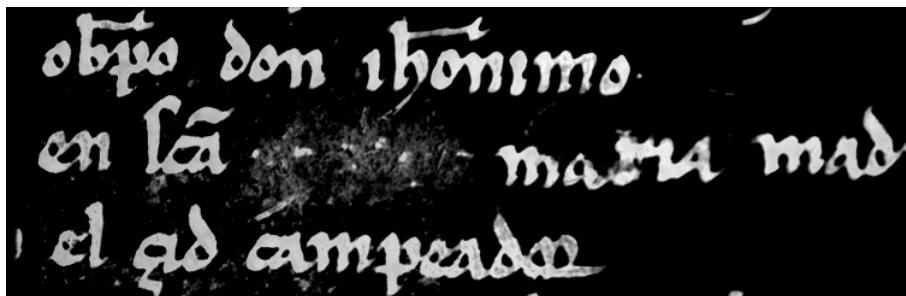 obp̅o don ih̅onimo
en sc̅a maria mad
el çid campeador